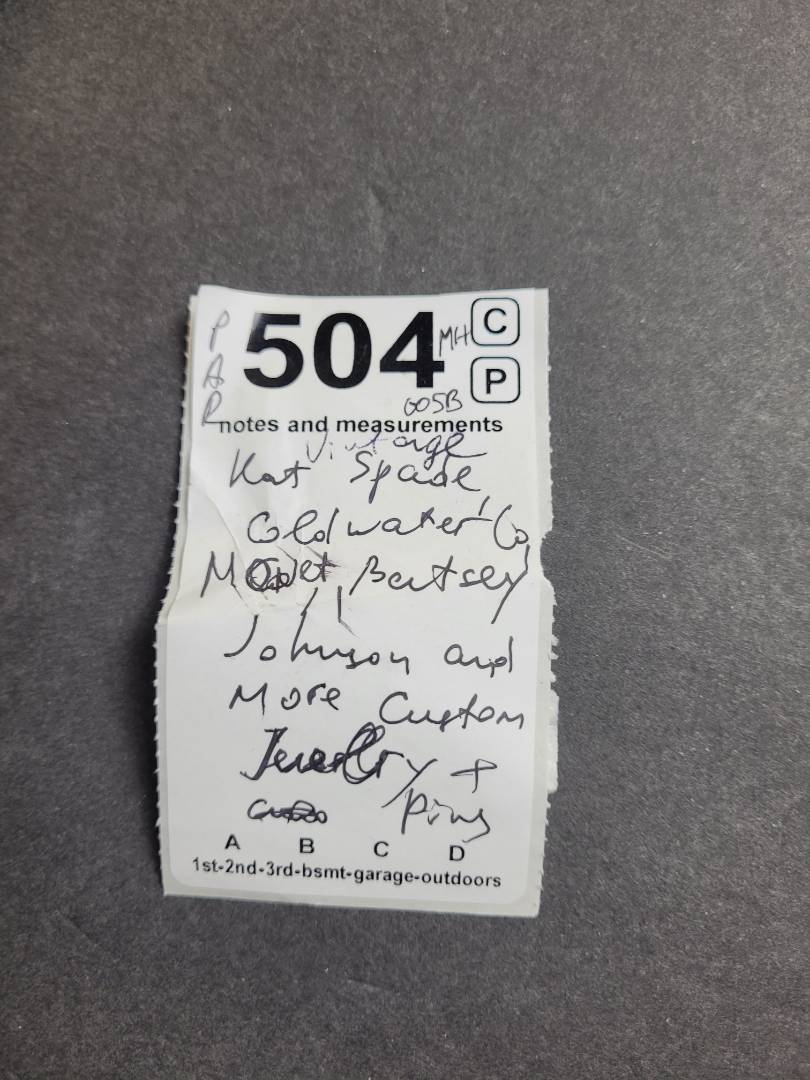 PAR
504
MH
C
P
005B
notes and measurements
Vintage
Kat Spade,
Coldwater Co,
Monet, Bertsey
Johnson and
More Custom
Jewelry +
Pins
A B C D
1st-2nd-3rd-bsmt-garage-outdoors